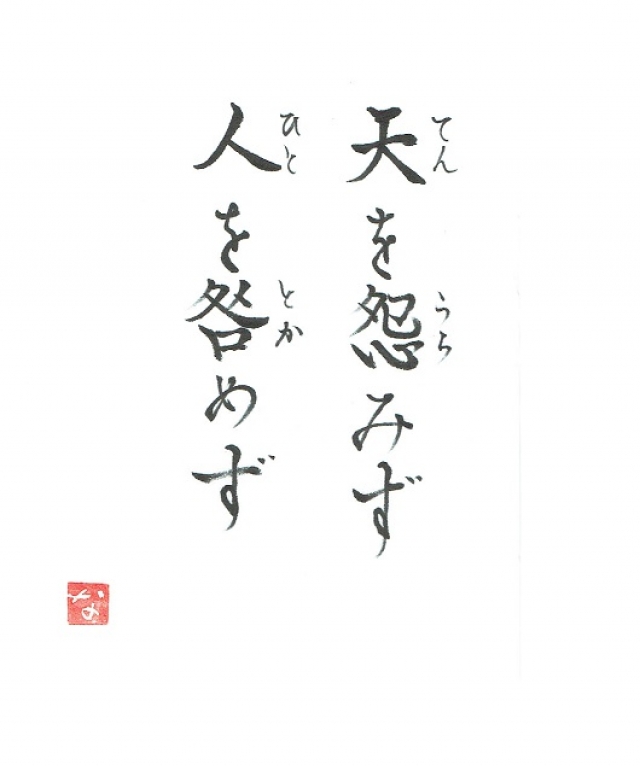 天を怨みず
てん
うら
人を咎めず
ひと
とが
な